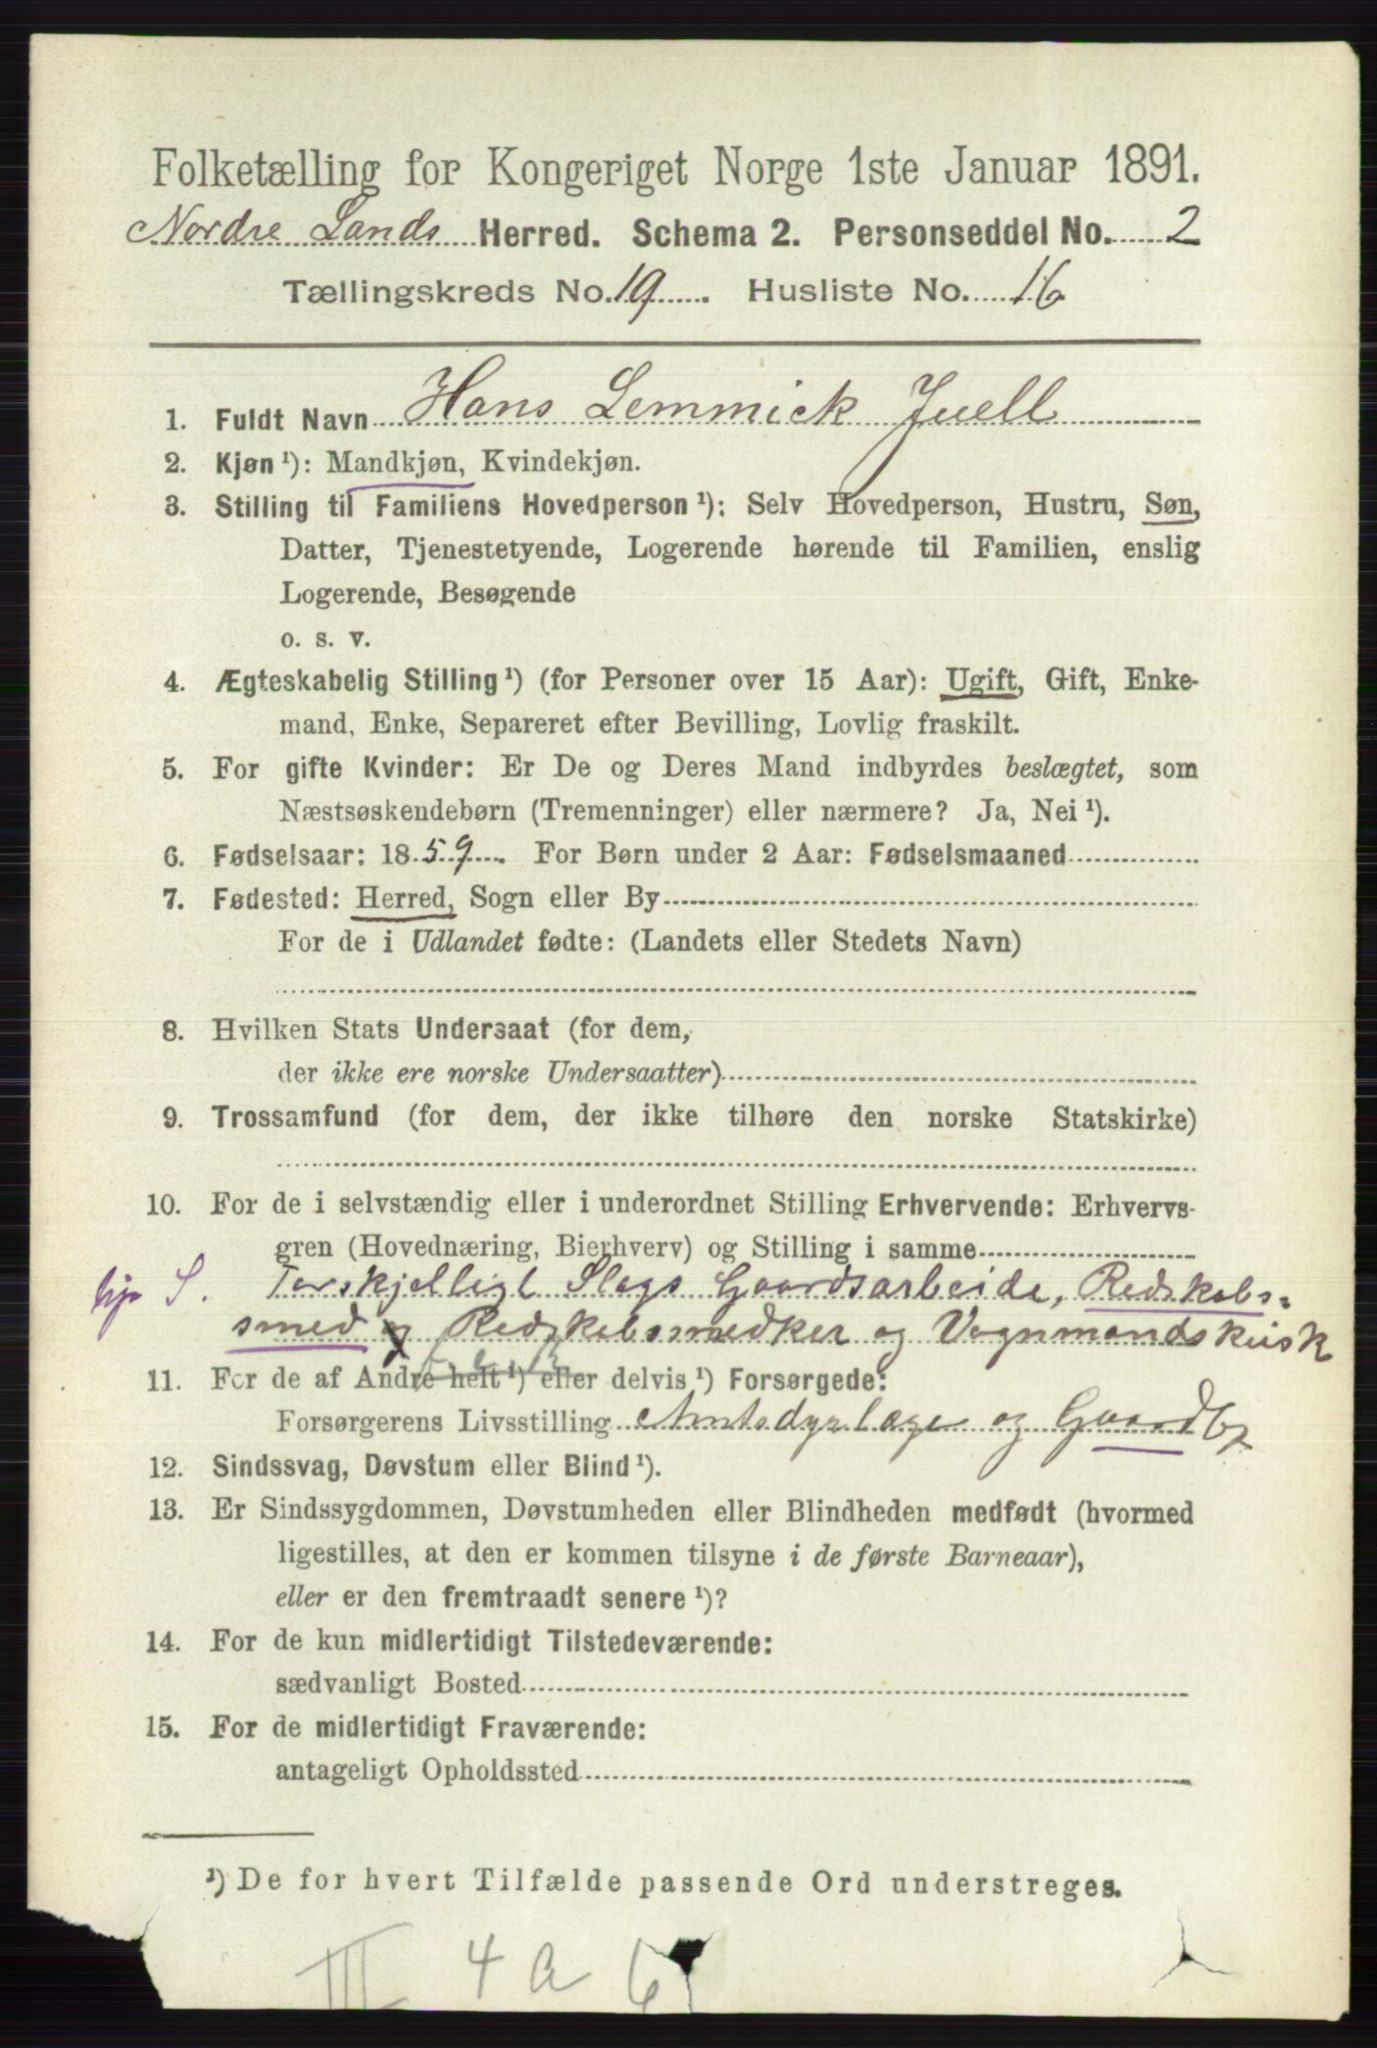 Folketælling for Kongeriget Norge 1ste Januar 1891.
Nordre Lands Herred. Schema 2. Personseddel No. 2
Tællingskreds No. 19. Husliste No. 16
1. Fuldt Navn Hans Lemmick Juell
2. Kjøn ¹): Mandkjøn, Kvindekjøn.
3. Stilling til Familiens Hovedperson ¹): Selv Hovedperson, Hustru, Søn,
Datter, Tjenestetyende, Logerende hørende til Familien, enslig
Logerende, Besøgende
o. s. v.
4. Ægteskabelig Stilling ¹) (for Personer over 15 Aar): Ugift, Gift, Enke-
mand, Enke, Separeret efter Bevilling, Lovlig fraskilt.
5. For gifte Kvinder: Er De og Deres Mand indbyrdes beslægtet, som
Næstsøskendebørn (Tremenninger) eller nærmere? Ja, Nei ¹).
6. Fødselsaar: 1859. For Børn under 2 Aar: Fødselsmaaned
7. Fødested: Herred, Sogn eller By
For de i Udlandet fødte: (Landets eller Stedets Navn)
8. Hvilken Stats Undersaat (for dem,
der ikke ere norske Undersaatter)
9. Trossamfund (for dem, der ikke tilhøre den norske Statskirke)
10. For de i selvstændig eller i underordnet Stilling Erhvervende: Erhvervs-
gren (Hovednæring, Bierhverv) og Stilling i samme
S. Forskjelligt Slags Gaardsarbeide, Redskabs-
smed og Redskabssnedker og Vognmandskusk
11. For de af Andre helt ¹) eller delvis ¹) Forsørgede:
Forsørgerens Livsstilling Amtsdyrlæge og Gaardb
12. Sindssvag, Døvstum eller Blind ¹).
13. Er Sindssygdommen, Døvstumheden eller Blindheden medfødt (hvormed
ligestilles, at den er kommen tilsyne i de første Barneaar),
eller er den fremtraadt senere ¹)?
14. For de kun midlertidigt Tilstedeværende:
sædvanligt Bosted
15. For de midlertidigt Fraværende:
antageligt Opholdssted
¹) De for hvert Tilfælde passende Ord understreges.
III 4 a 6